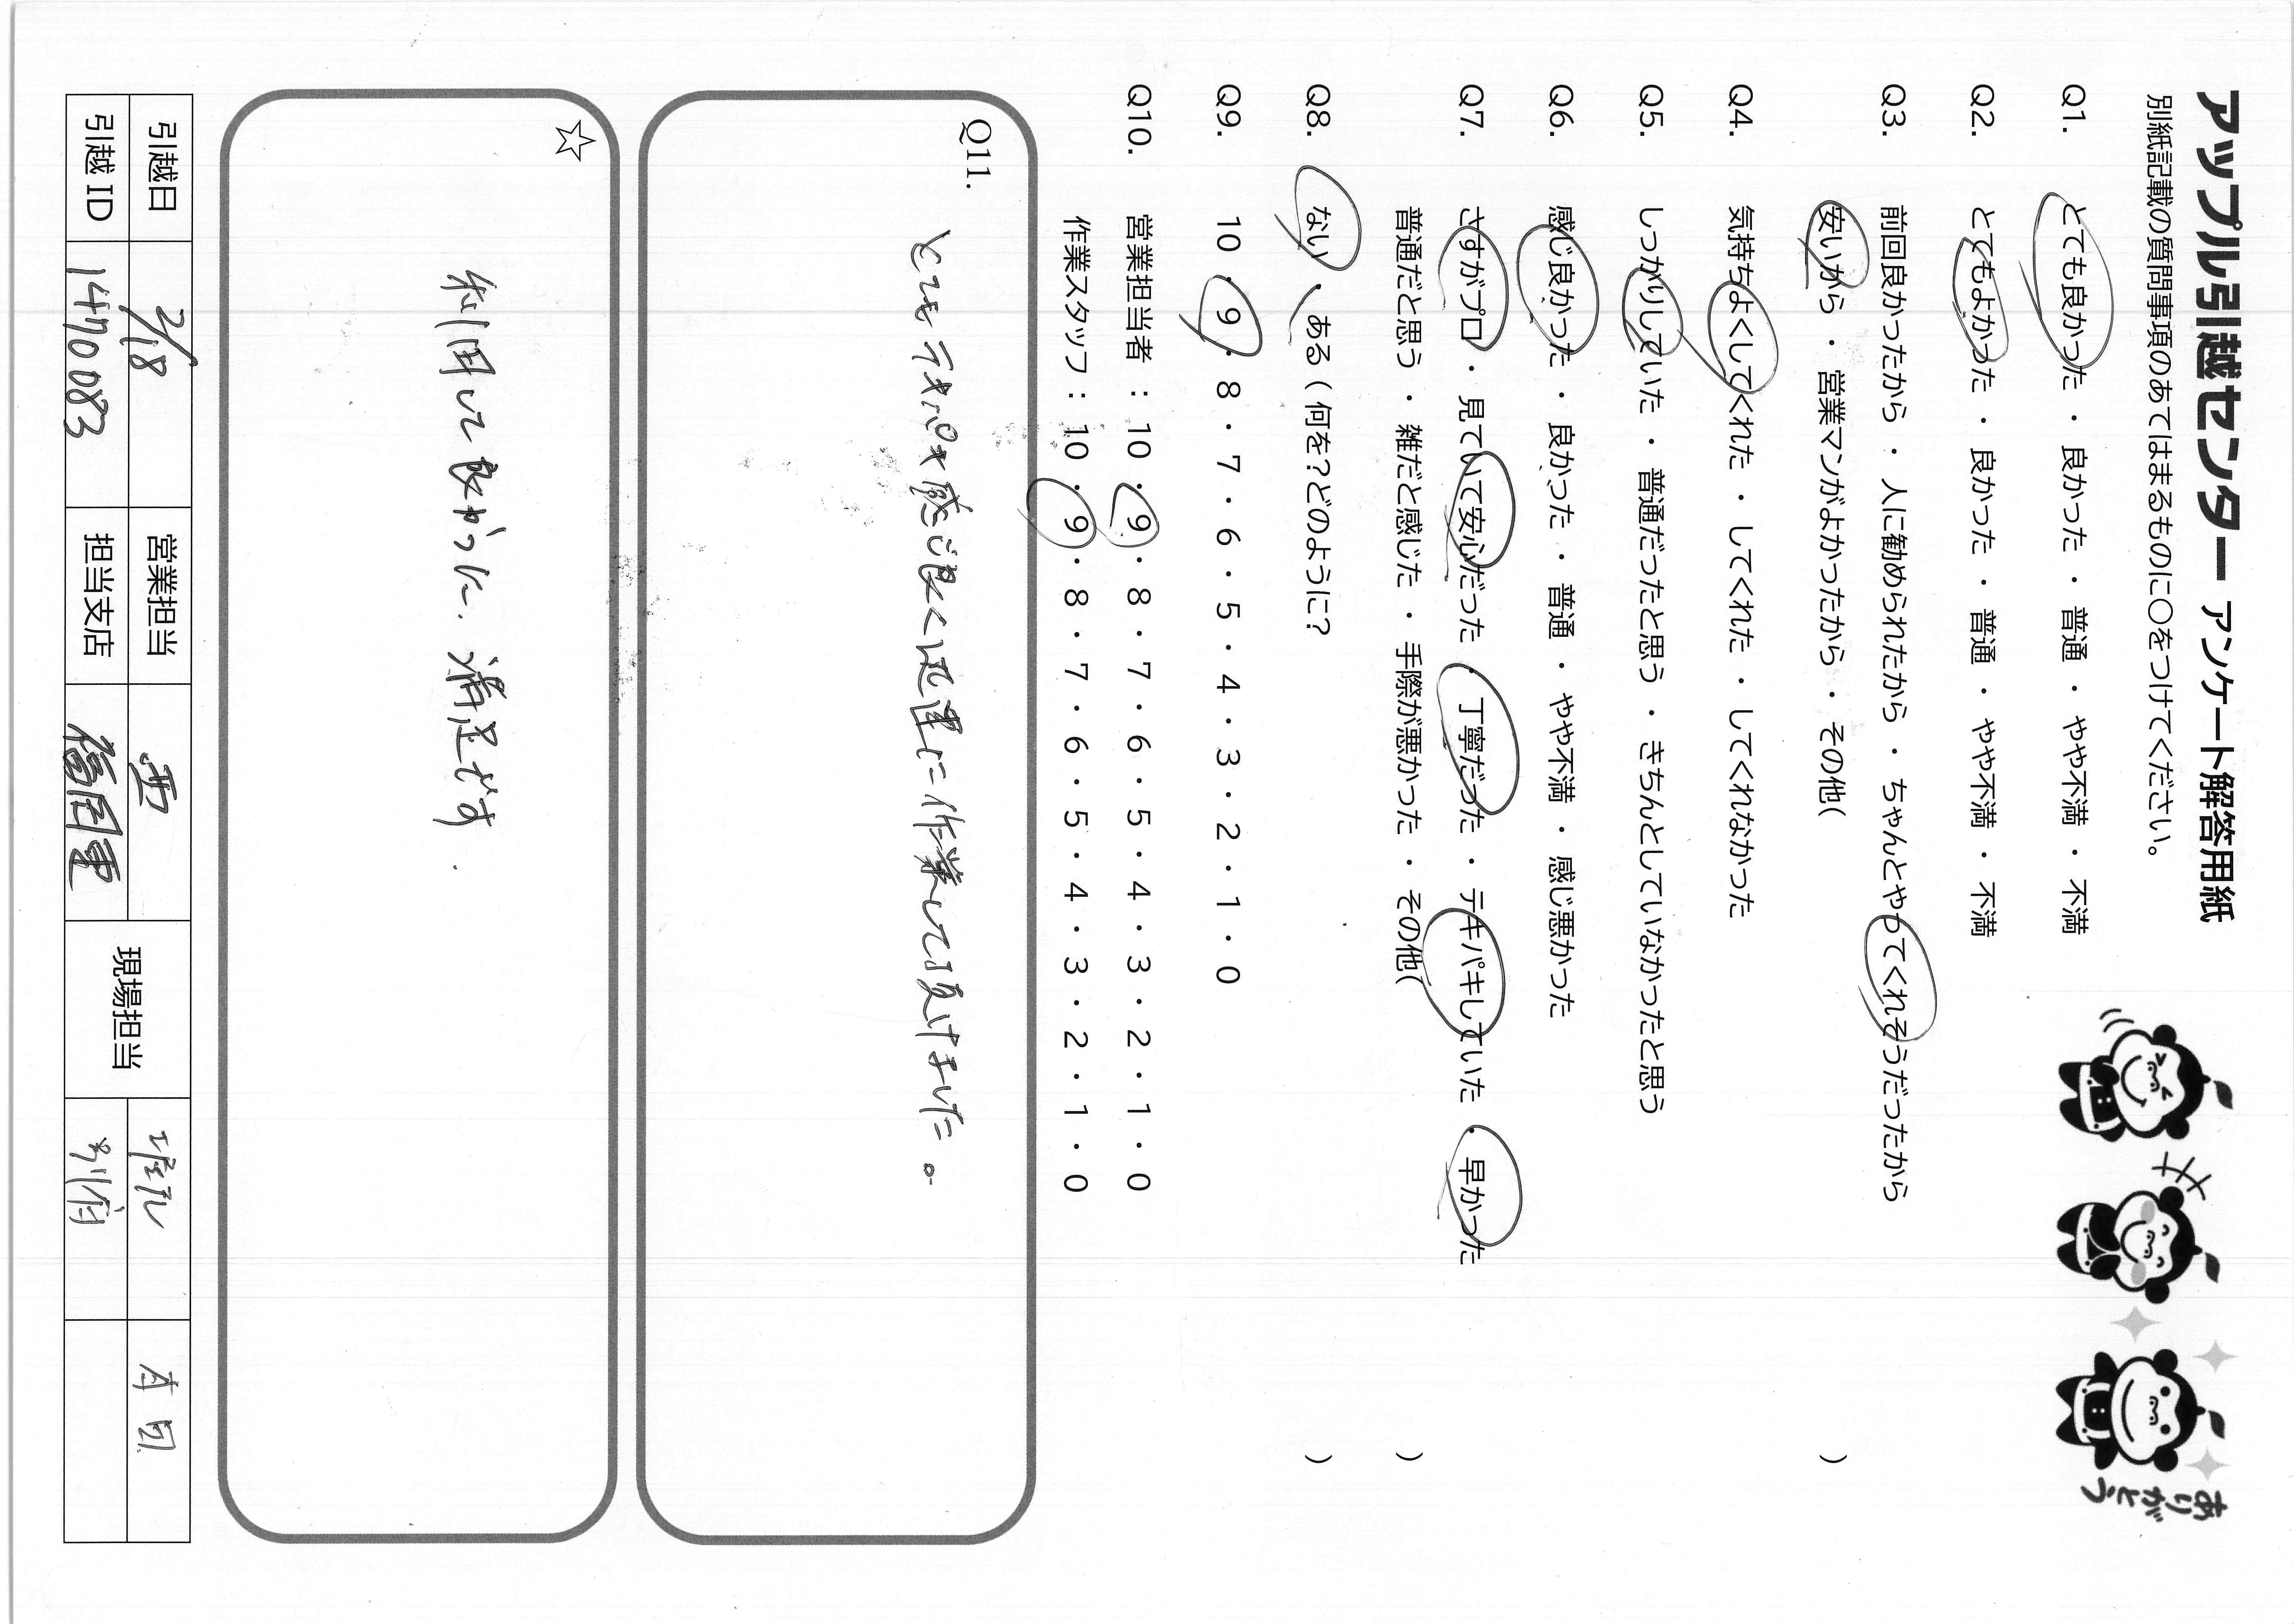 アップル引越センター アンケート解答用紙
別紙記載の質問事項のあてはまるものに○をつけてください。
ありがとう
Q1. とても良かった ・ 良かった ・ 普通 ・ やや不満 ・ 不満
Q2. とてもよかった ・ 良かった ・ 普通 ・ やや不満 ・ 不満
Q3. 前回良かったから ・ 人に勧められたから ・ ちゃんとやってくれそうだったから
安いから ・ 営業マンがよかったから ・ その他( )
Q4. 気持ちよくしてくれた ・ してくれた ・ してくれなかった
Q5. しっかりしていた ・ 普通だったと思う ・ きちんとしていなかったと思う
Q6. 感じ良かった ・ 良かった ・ 普通 ・ やや不満 ・ 感じ悪かった
Q7. さすがプロ ・ 見ていて安心だった ・ 丁寧だった ・ テキパキしていた ・ 早かった
普通だと思う ・ 雑だと感じた ・ 手際が悪かった ・ その他( )
Q8. ない ・ ある ( 何を？どのように？ )
Q9. 10 ・ 9 ・ 8 ・ 7 ・ 6 ・ 5 ・ 4 ・ 3 ・ 2 ・ 1 ・ 0
Q10. 営業担当者 : 10 ・ 9 ・ 8 ・ 7 ・ 6 ・ 5 ・ 4 ・ 3 ・ 2 ・ 1 ・ 0
作業スタッフ : 10 ・ 9 ・ 8 ・ 7 ・ 6 ・ 5 ・ 4 ・ 3 ・ 2 ・ 1 ・ 0
Q11.
とても テキパキ 感じ良く迅速に作業して頂けました。
☆
利用して良かった. 満足です.
引越日 2/18 営業担当 西 現場担当
引越 ID 1470083 担当支店 別府